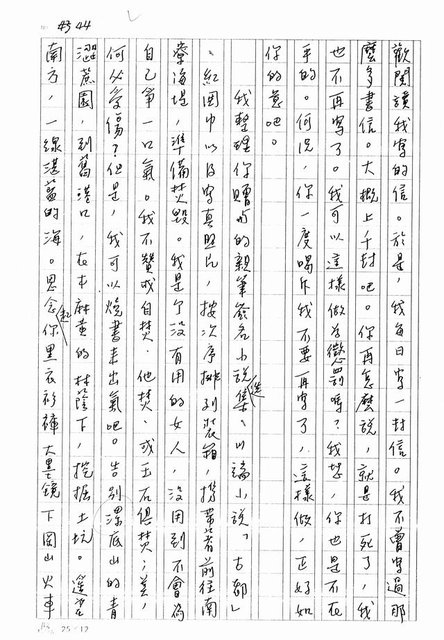 43 44
歡閱讀我寫的信。於是，我每日寫一封信。我不曾寫過那
麼多書信。大概上千封吧。你再怎麼說，就是打死了，我
也不再寫了。我可以這樣做為懲罰嗎？我想，你也是不在
乎的。何況，你一度喝斥我不要再寫了，這樣做，正好如
你的意吧。
我整理你贈与的親筆簽名小說選集、川端小說「古都」
、紅圍巾以及寫真照片，按次序排列裝箱，攜帶着前往南
海堤，準備焚毀。我是個沒有用的女人，沒用到不會為
自己爭一口氣。我不贊成自焚、他焚、或玉石俱焚；美，
何必受傷？但是，我可以燒書出出氣吧。告別深底山的青
澀蔗園，到舊港口，在木麻黃的林蔭下，挖掘土坑。遙望
南方，一線湛藍的海。思念起你黑衣衫褲大墨鏡下岡山火車
25-12